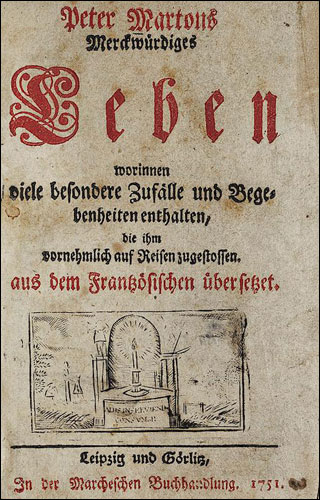 Peter Martons
Merckwürdiges
Leben
worinnen
viele besondere Zufälle und Bege-
benheiten enthalten,
die ihm
vornehmlich auf Reisen zugestossen.
aus dem Frantzösischen übersetzet.
Leipzig und Görlitz,
In der Marcheschen Buchhandlung. 1751.